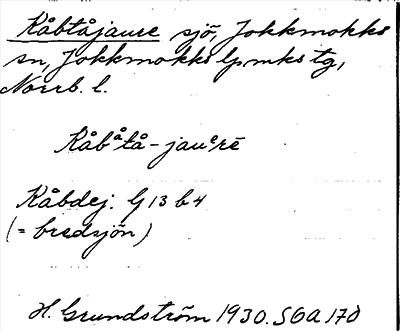 Kåbtåjaure sjö, Jokkmokks
sn, Jokkmokks lpmks tg,
Norrb. l.
Kåbåtå-jauerē
Kåbdej: G 13 b 4
(= bredsjön)
H. Grundström 1930. SOA 170